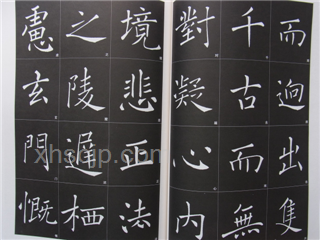 而迥出隻
千古而無
對凝心內
境悲正法
之陵遲栖
慮玄門慨